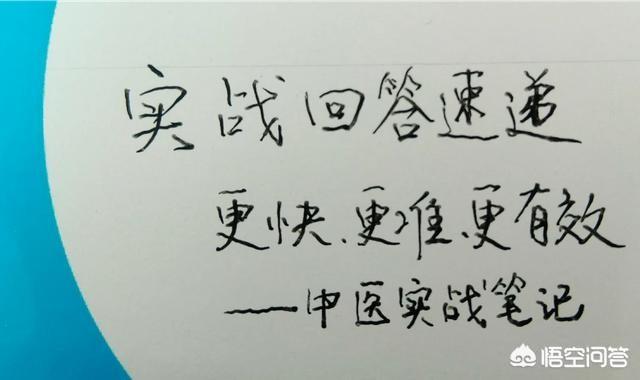 实战回答速递
更快、更准、更有效
——中医实战笔记
悟空问答